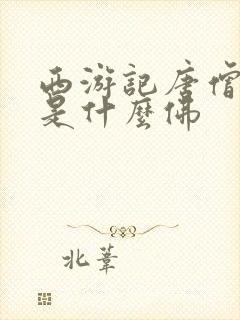 西游記唐僧
是什麼佛
北葦